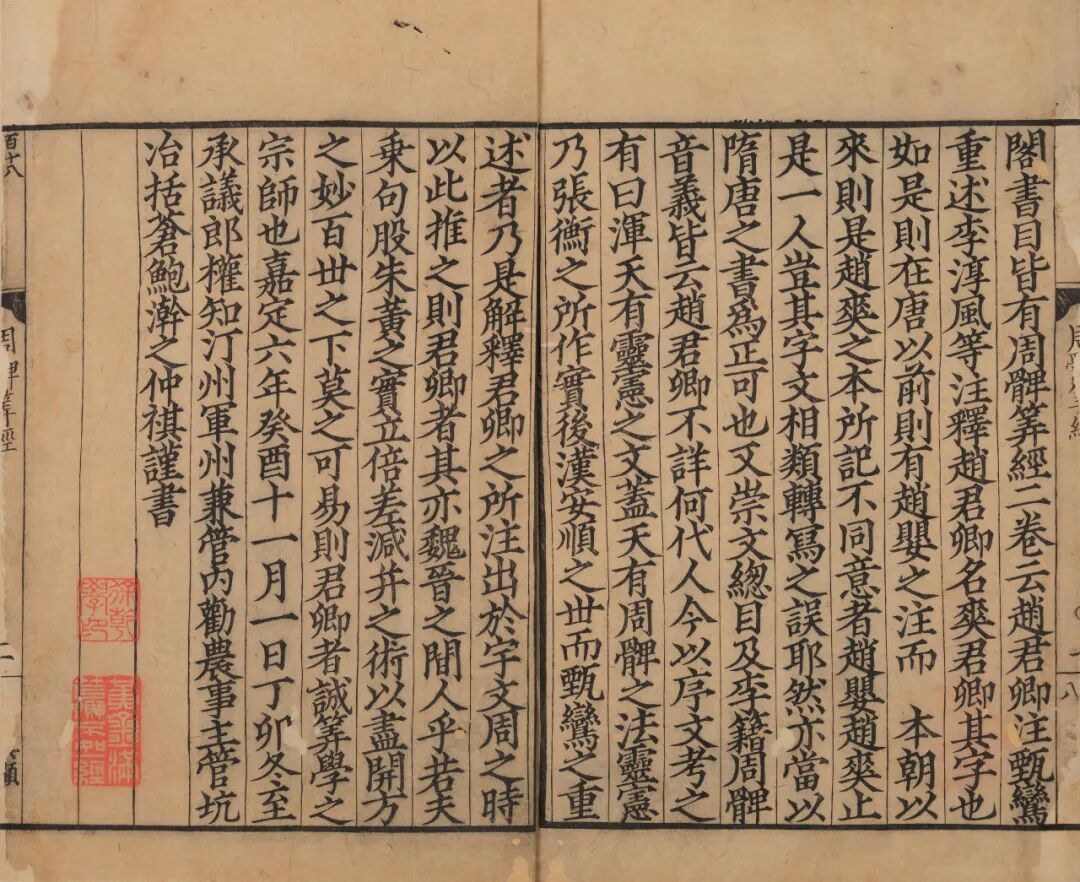 閣書目皆有周髀筭經二卷云趙君卿注甄鸞
重述李淳風等注釋趙君卿名爽君卿其字也
如是則在唐以前則有趙嬰之注而　本朝以
來則是趙爽之本所記不同意者趙嬰趙爽止
是一人豈其字文相類轉寫之誤耶然亦當以
隋唐之書爲正可也又崇文總目及李籍周髀
音義皆云趙君卿不詳何代人今以序文考之
有曰渾天有靈憲之文蓋天有周髀之法靈憲
乃張衡之所作實後漢安順之世而甄鸞之重
述者乃是解釋君卿之所注出於宇文周之時
以此推之則君卿者其亦魏晉之間人乎若夫
乗句股朱黃之實立倍差減并之術以盡開方
之妙百世之下莫之可易則君卿者誠筭學之
宗師也嘉定六年癸酉十一月一日丁卯冬至
承議郎權知汀州軍州兼管內勸農事主管坑
冶括蒼鮑澣之仲祺謹書
百十八
周髀筭經
黃金滿
籯不如
一經